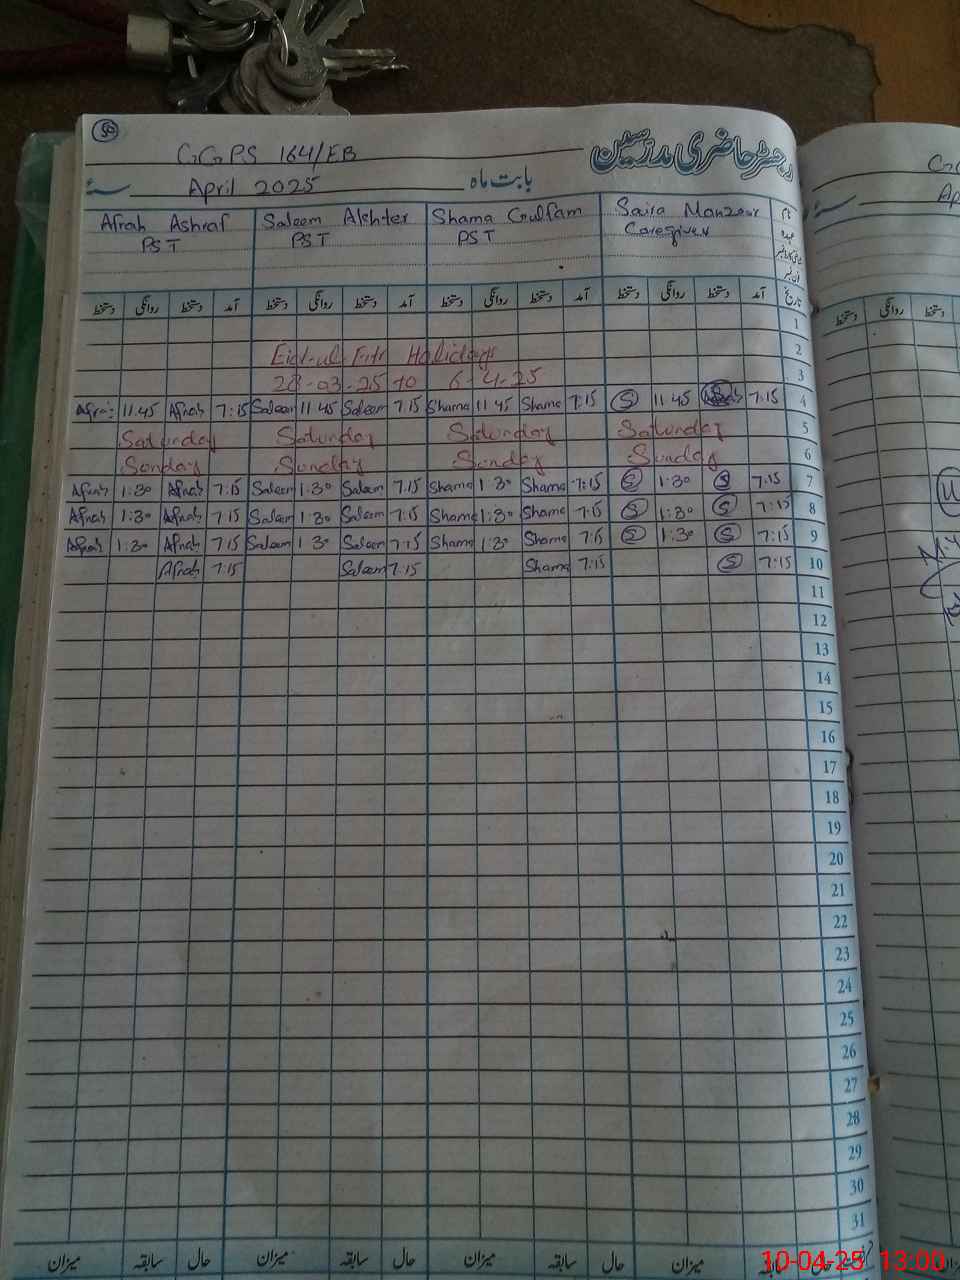 50
GGPS 164/EB
رجسٹر حاضری مدرسین
April 2025 بابت ماہ سنہ
Afrah Ashraf Saleem Akhter Shama Gulfam Saira Manzoor نام
PST PST PST Caregiver عہدہ
دستخط روانگی دستخط آمد دستخط روانگی دستخط آمد دستخط روانگی دستخط آمد دستخط روانگی دستخط آمد تاریخ
1
Eid-ul-Fitr Holidays 2
28-03-25 to 6-4-25 3
11:45 Afrah 7:15 Saleem 11:45 Saleem 7:15 Shama 11:45 Shama 7:15 S 11:45 7:15 4
Saturday Saturday Saturday Saturday 5
Sunday Sunday Sunday Sunday 6
Afrah 1:30 Afrah 7:15 Saleem 1:30 Saleem 7:15 Shama 1:30 Shama 7:15 S 1:30 S 7:15 7
Afrah 1:30 Afrah 7:15 Saleem 1:30 Saleem 7:15 Shama 1:30 Shama 7:15 S 1:30 S 7:15 8
Afrah 1:30 Afrah 7:15 Saleem 1:30 Saleem 7:15 Shama 1:30 Shama 7:15 S 1:30 S 7:15 9
Afrah 7:15 Saleem 7:15 Shama 7:15 S 7:15 10
11
12
13
14
15
16
17
18
19
20
21
22
23
24
25
26
27
28
29
30
31
میزان سابقہ حال میزان سابقہ حال میزان سابقہ حال میزان سابقہ حال
10-04-25 13:00
سنہ
دستخط روانگی دستخط